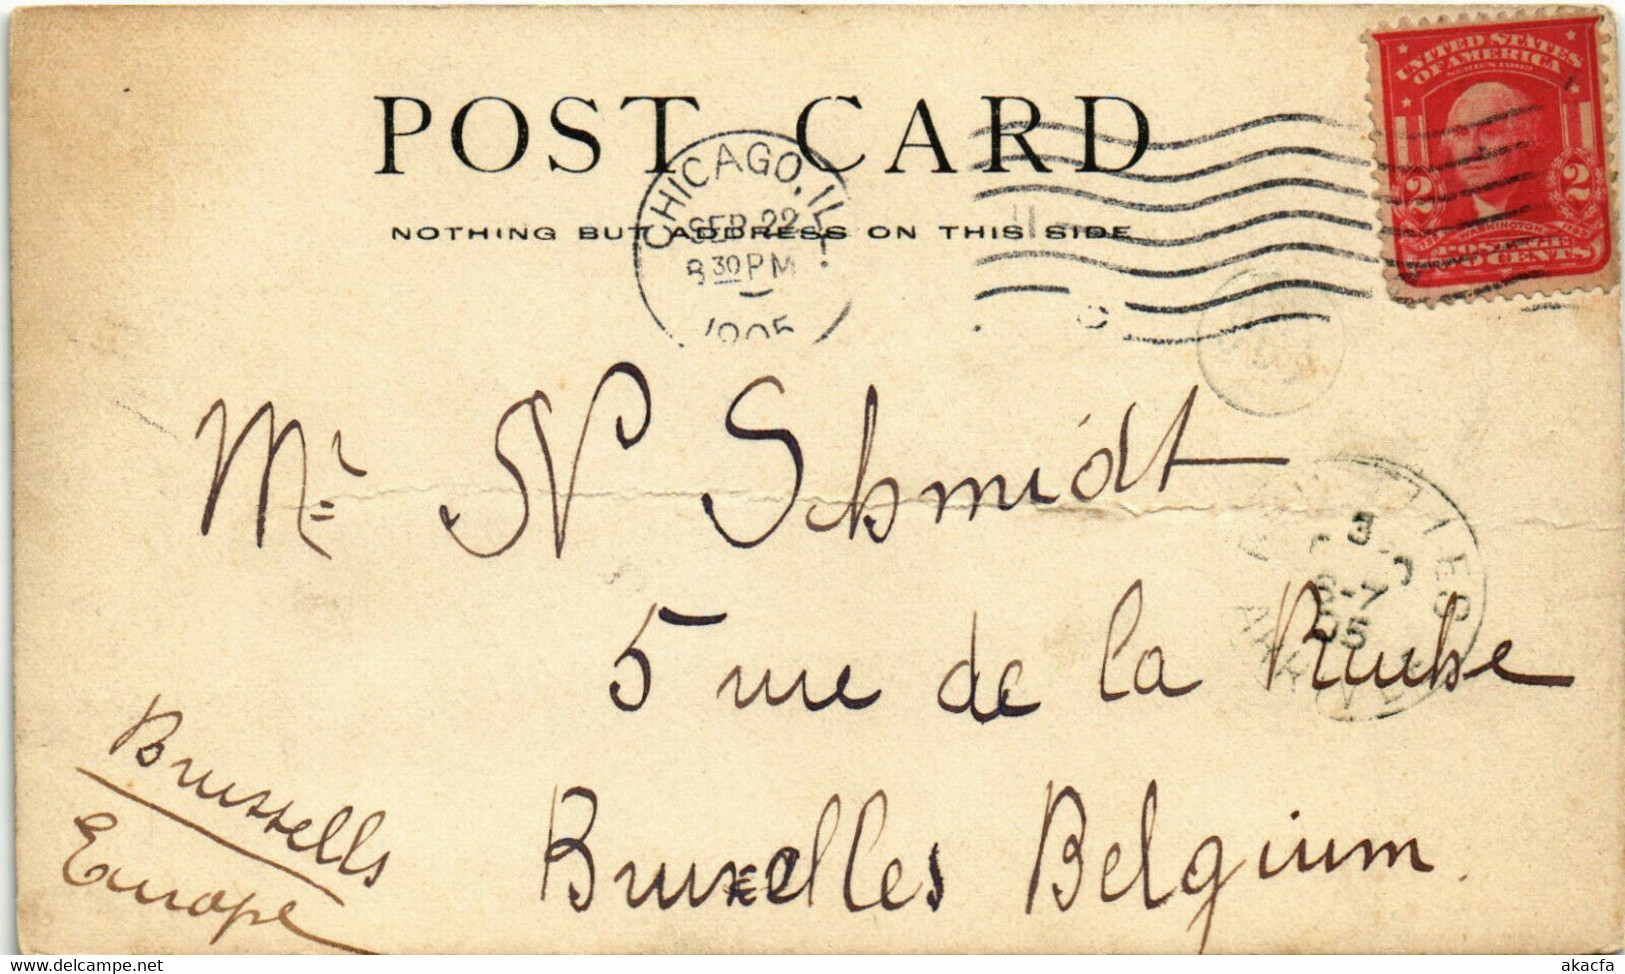 POST CARD
NOTHING BUT ADDRESS ON THIS SIDE
CHICAGO, ILL.
SEP 22
8 30 PM
1905
UNITED STATES
OF AMERICA
SERIES 1902
2 2
WASHINGTON
POSTAGE
TWO CENTS
Mr N Schmidt
5 rue de la Ruche
Bruxelles Belgium.
Brussells
Europe
3
6-7
05
akacfa
www.delcampe.net